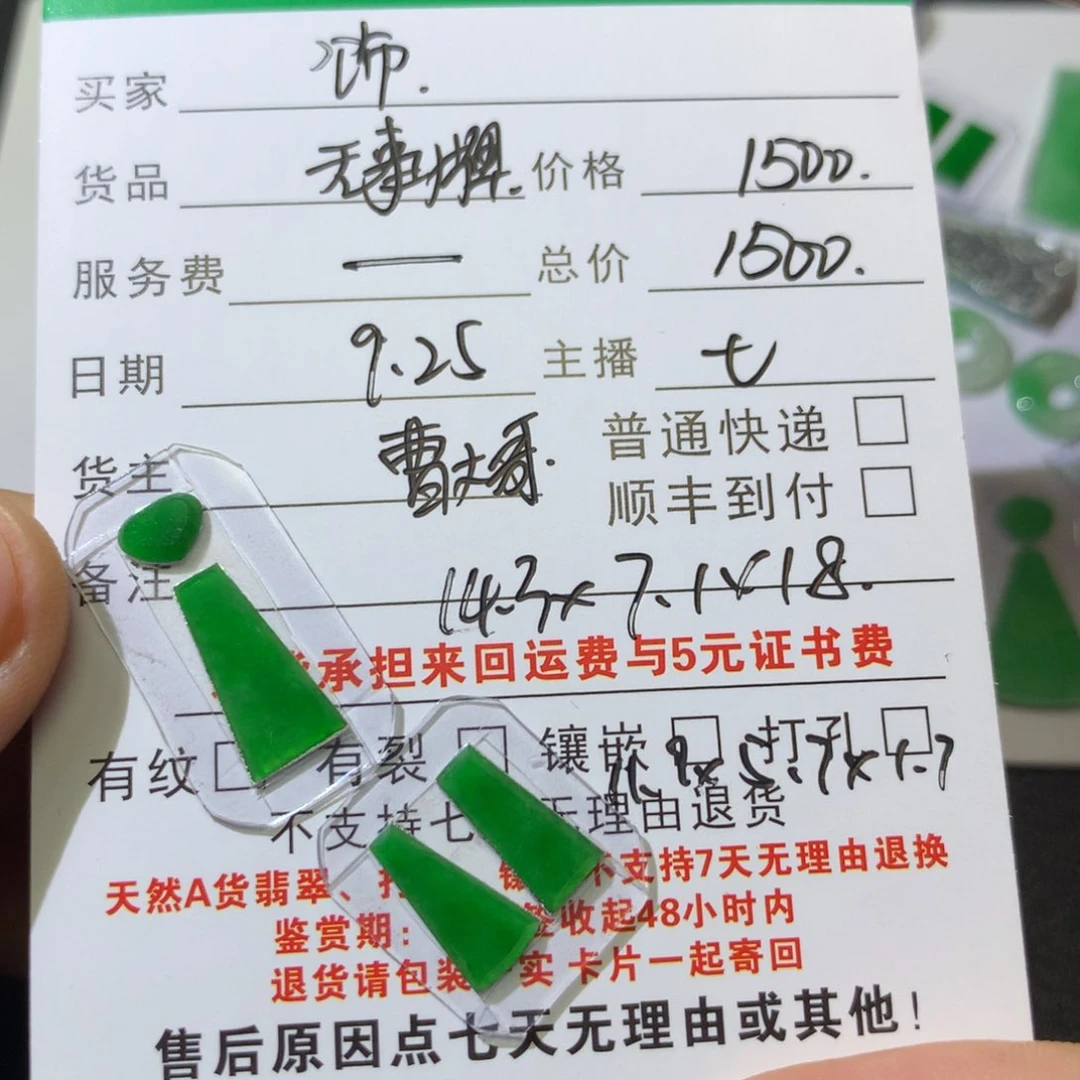 买家
货品 无事牌. 价格 1500.
服务费 — 总价 1500.
日期 9.25 主播 七
货主 曹大哥. 普通快递
顺丰到付
备注 14.3x7.1x1.8.
承担来回运费与5元证书费
有纹 有裂 镶嵌 打孔
不支持七 无理由退货
天然A货翡翠、 不支持7天无理由退换
鉴赏期: 签收起48小时内
退货请包装 实 卡片一起寄回
售后原因点七天无理由或其他!